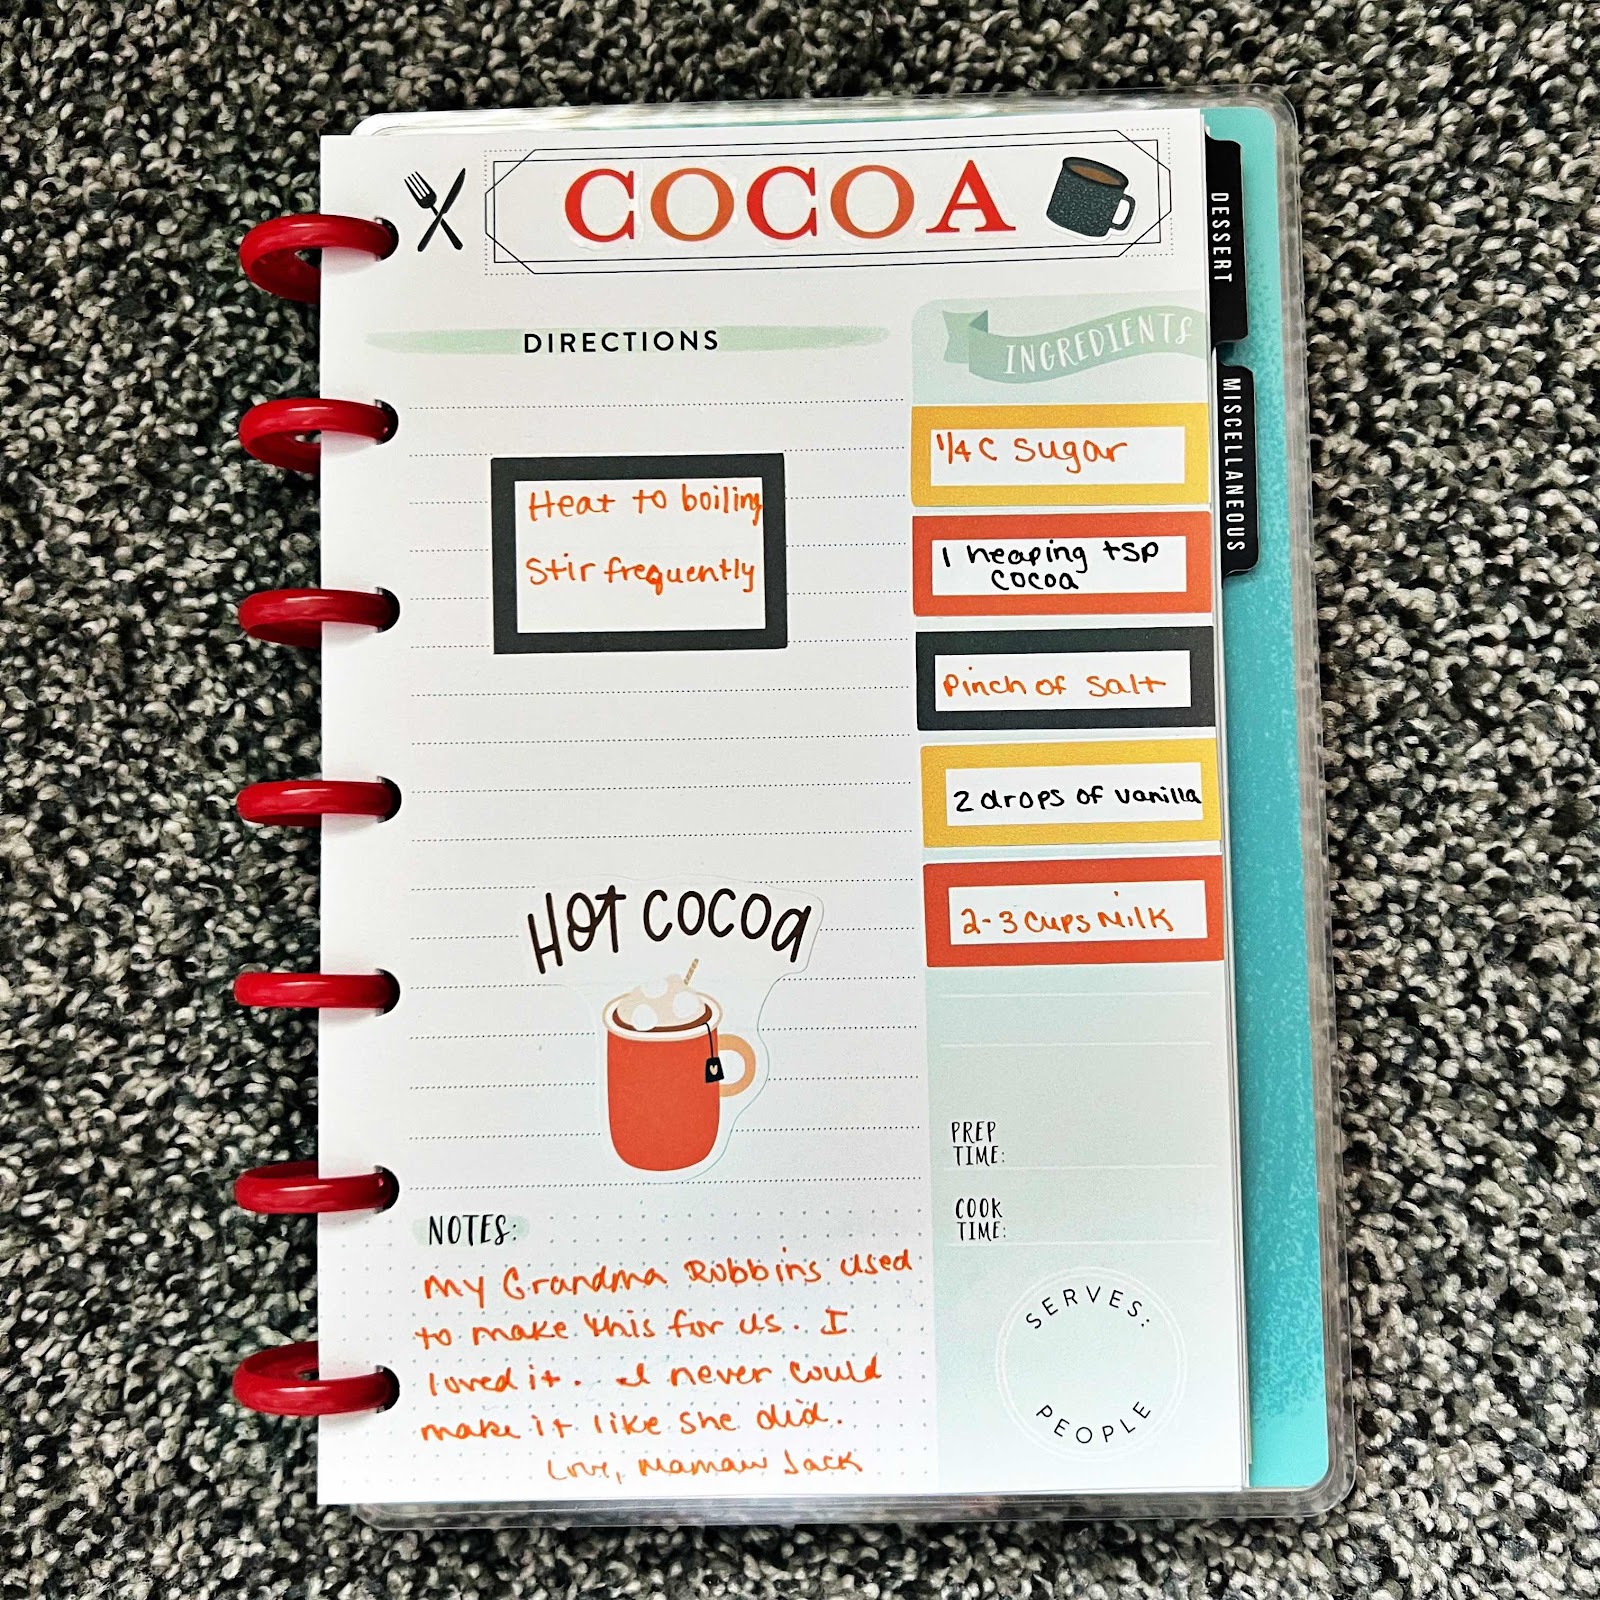 COCOA
DIRECTIONS
Heat to boiling
Stir frequently
HOT COCOA
NOTES:
My Grandma Robbins used
to make this for us. I
loved it. I never could
make it like she did.
Love, Mamaw Jack
INGREDIENTS
1/4 C Sugar
1 heaping tsp
cocoa
Pinch of Salt
2 drops of vanilla
2-3 cups Milk
PREP
TIME:
COOK
TIME:
SERVES:
PEOPLE
DESSERT
MISCELLANEOUS